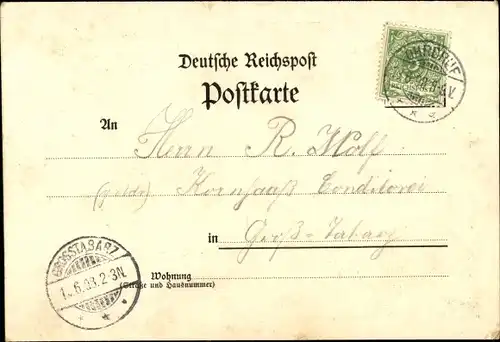 Deutsche Reichspost
Postkarte
An Herrn R. Wolf
Kornhaaß Conditorei
in Groß-Tabarz
Wohnung
(Straße und Hausnummer)
GROSSTABARZ
6.03.2-3N.